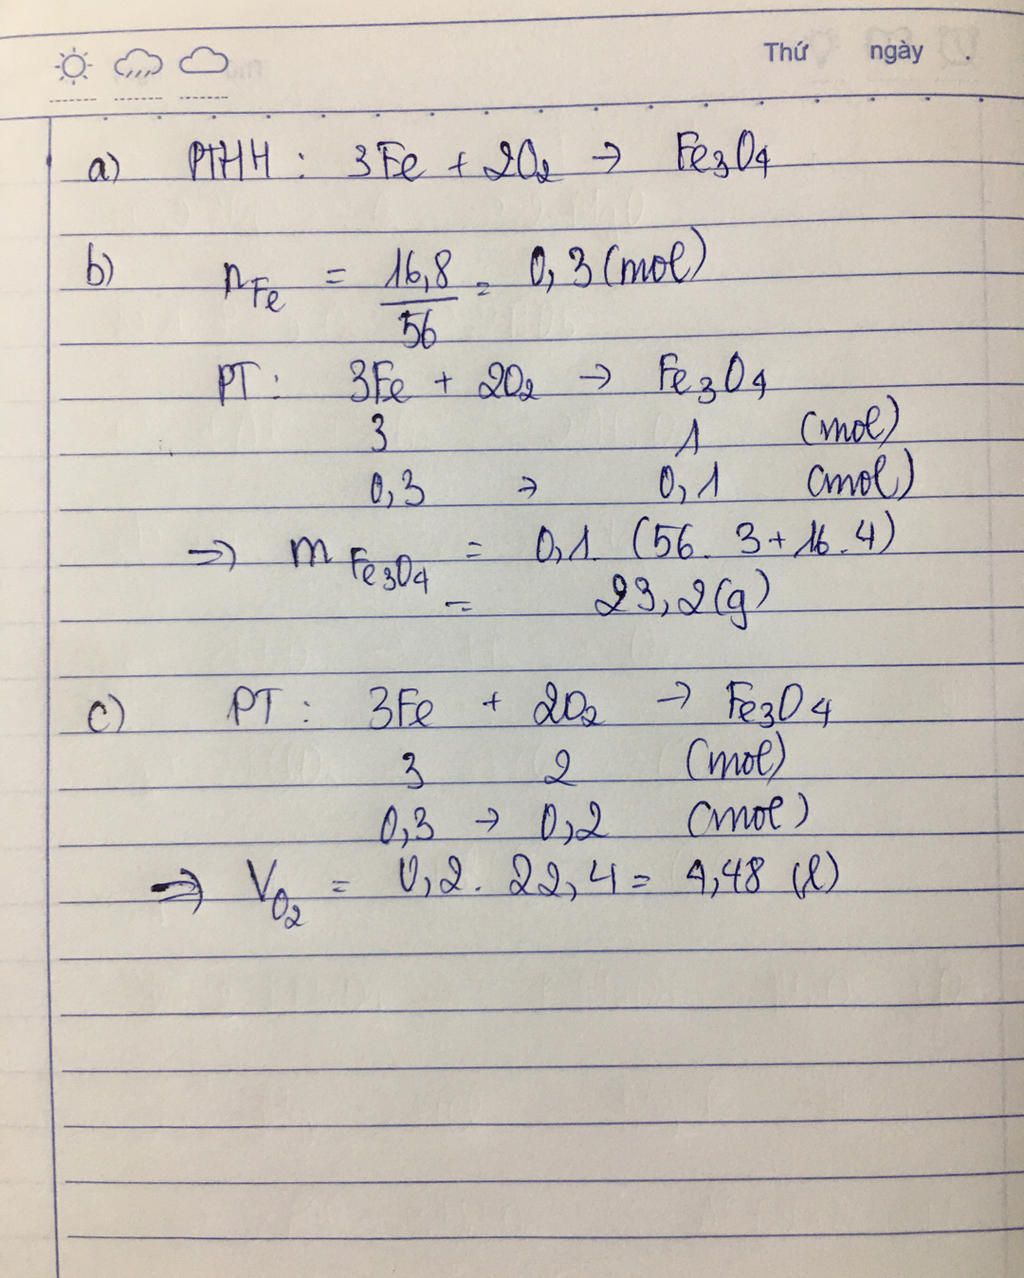 Thứ ngày .
a) PTHH : 3Fe + 2O₂ → Fe₃O₄
b) n_Fe = 16,8/56 = 0,3 (mol)
PT : 3Fe + 2O₂ → Fe₃O₄
3 1 (mol)
0,3 → 0,1 (mol)
=> m_Fe₃O₄ = 0,1. (56. 3 + 16. 4)
= 23,2 (g)
c) PT : 3Fe + 2O₂ → Fe₃O₄
3 2 (mol)
0,3 → 0,2 (mol)
=> V_O₂ = 0,2. 22,4 = 4,48 (l)